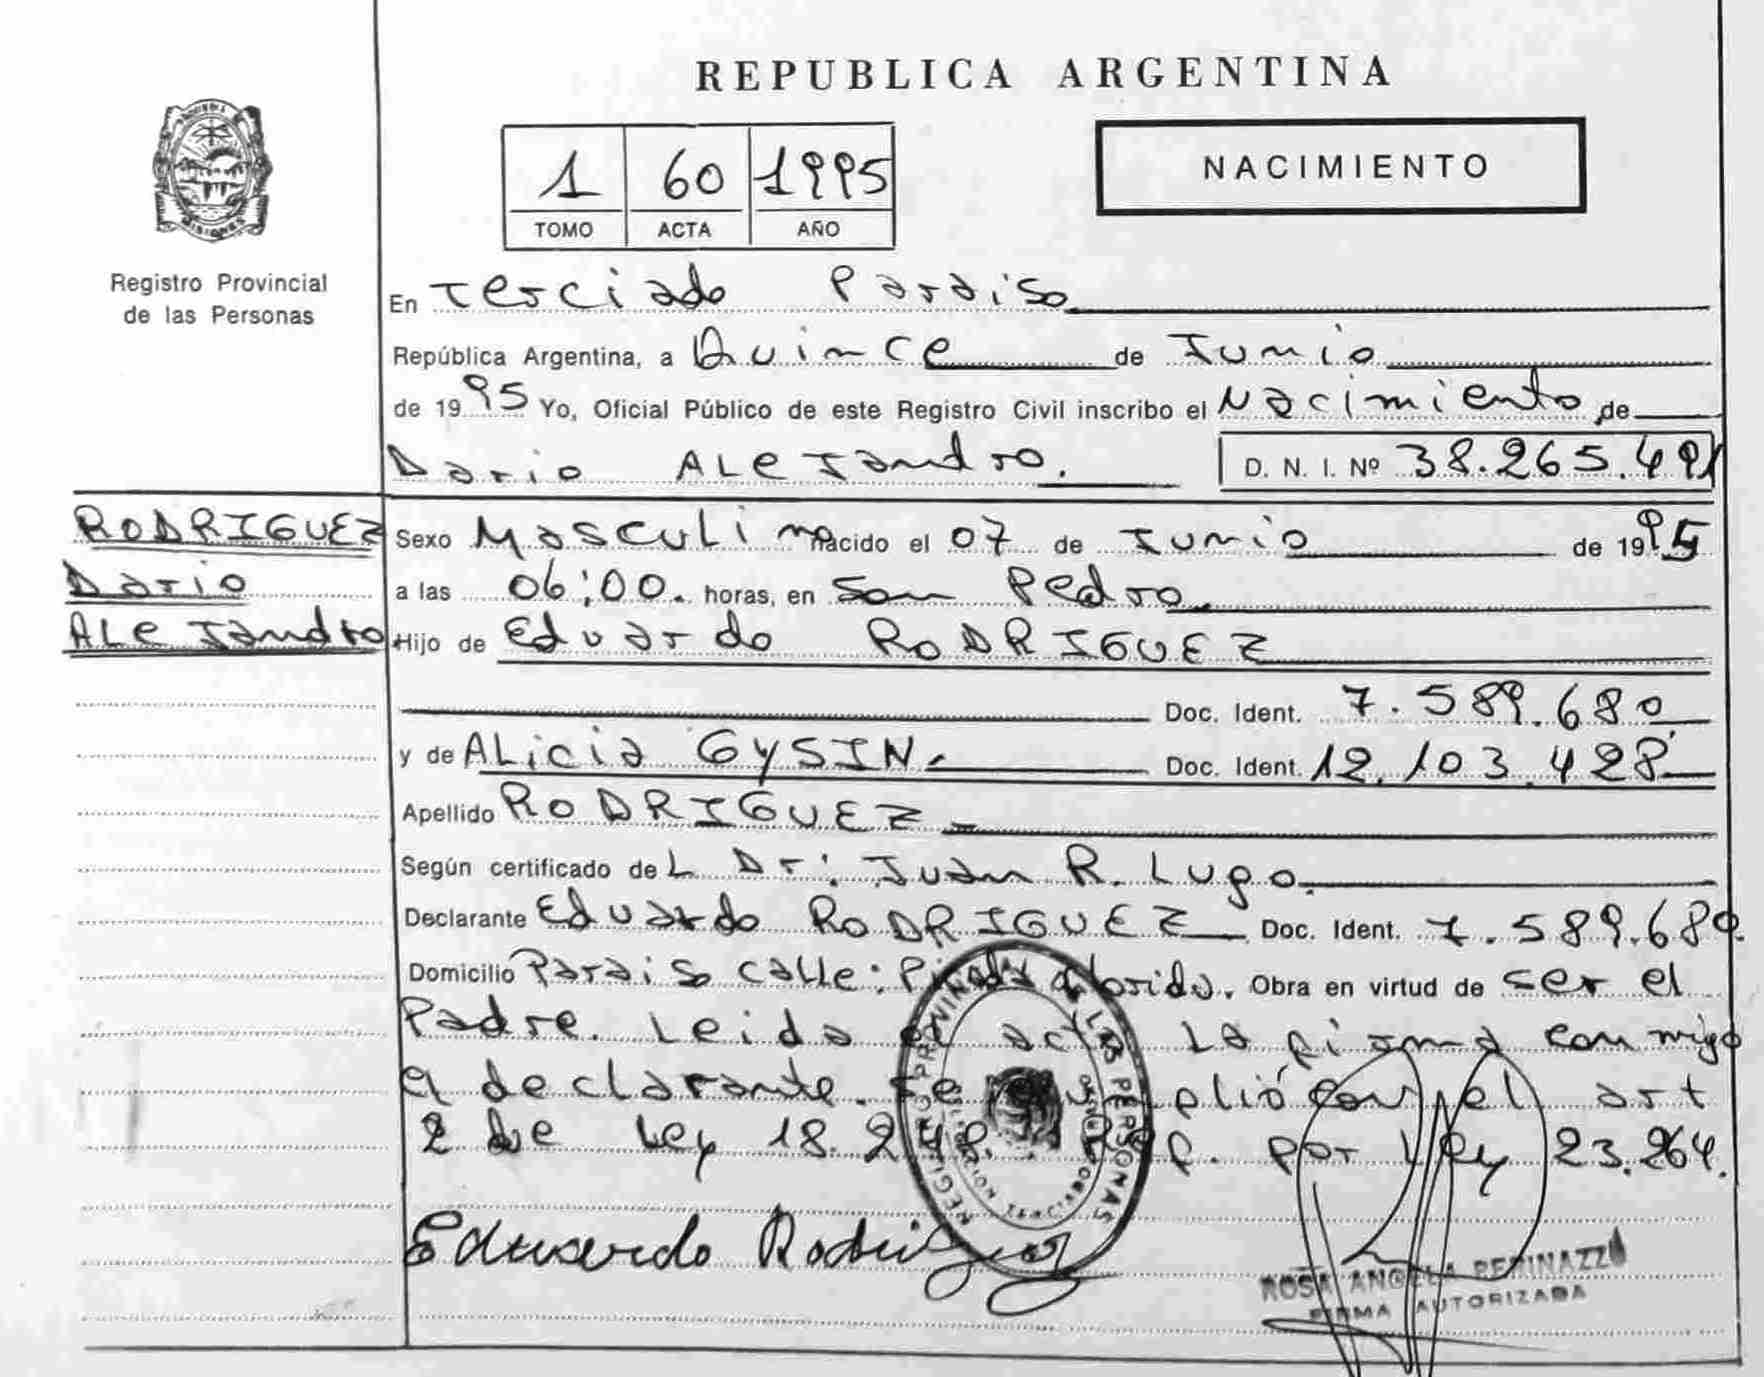 REPUBLICA ARGENTINA
1 60 1995
TOMO ACTA AÑO
NACIMIENTO
MISIONES
Registro Provincial
de las Personas
En Terciado Paraiso
República Argentina, a Quince de Junio
de 1995 Yo, Oficial Público de este Registro Civil inscribo el Nacimiento de
Dario ALeJandro. D. N. I. Nº 38.265.491
RODRIGUEZ
Dario
ALeJandro
Sexo MascuLino nacido el 07 de Junio de 1995
a las 06:00. horas, en San Pedro.
Hijo de Eduardo RODRIGUEZ
Doc. Ident. 7.589.680
y de ALicia GYSIN. Doc. Ident. 12.103.428
Apellido RODRIGUEZ
Según certificado de L Dr: Juan R. Lugo.
Declarante Eduardo RODRIGUEZ Doc. Ident. 7.589.680
Domicilio Paraiso caLLe: Picada florida. Obra en virtud de ser el
Padre. Leida el acta La firma conmigo
el declarante. Se cumplió con el art
2 de Ley 18.248. por Ley 23.264.
Eduardo Rodriguez
REGISTRO PROVINCIAL DE LAS PERSONAS
ROSA ANGELA
FIRMA AUTORIZADA